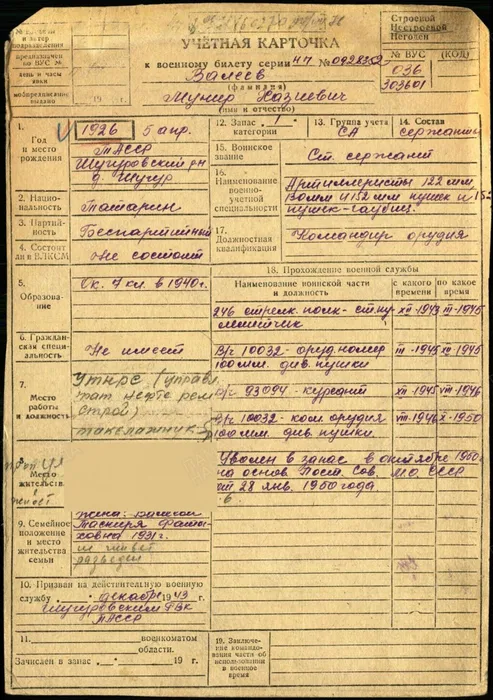 Строевой
Нестроевой
Не годен
№ и литер
подразделения
предназначен
по ВУС №
день и часы
явки
мобпредписание
выдано
19 г.
УЧЁТНАЯ КАРТОЧКА
к военному билету серии НЧ № 0928352
Валеев
(фамилия)
Мунир Казиевич
(имя и отчество)
№ ВУС (КОД)
036
303601
1.
Год
и место
рождения
1926 5 апр.
ТАССР
Шугуровский рн
д. Шугур
12. Запас 1
категории
13. Группа учета
СА
14. Состав
сержанты
15. Воинское
звание
Ст. сержант
16.
Наименование
военно-
учетной
специальности
Артиллеристы 122 мм
130мм и 152 мм пушек и 152
пушек-гаубиц
2. Национальность
Татарин
3. Партийность
Беспартийный
4. Состоит
ли в ВЛКСМ
Не состоит
17.
Должностная
квалификация
Командир орудия
18. Прохождение военной службы
Наименование воинской части
и должность
с какого
времени
по какое
время
5.
Образование
Ок. 7 кл. в 1940г.
246 стрелк. полк - ст. пу
леметчик
XII-1943 III-1945
6. Гражданская
специальность
Не имеет
В/ч 10032 - оруд. номер
100мм. див. пушки
III-1945 XII-1945
7.
Место
работы
и должность
УТНРС (управл
тат нефте рем
строй)
такелажник
В/ч 93094 - курсант
XII-1945 VIII-1946
В/ч 10032 - ком. орудия
100мм. див. пушки.
VIII-1946 X-1950
8.
Место
жительства
Уволен в запас в октябре 1950
на основ. Пост. Сов. М.О. СССР
от 28 янв. 1950 года
9. Семейное
положение
и место
жительства
семьи
жена:
1931 г.
не живет
разведен
10. Призван на действительную военную
службу декабрь 1943
Шугуровским РВК
ТАССР
11. военкоматом
области.
Зачислен в запас 19 г.
19. Заключение
командования
части об
использовании
в военное
время